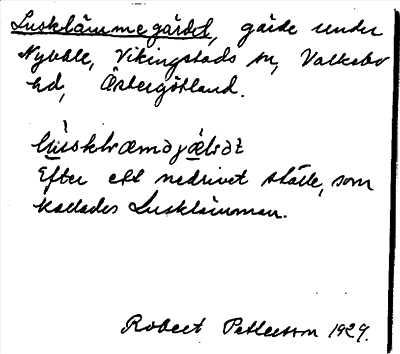 Lusklämmegärdet, gärde under
Nybble, Vikingstads sn, Valkebo
hd, Östergötland.
Efter ett nedrivet ställe, som
kallades Lusklämman.
Robert Pettersson 1929.